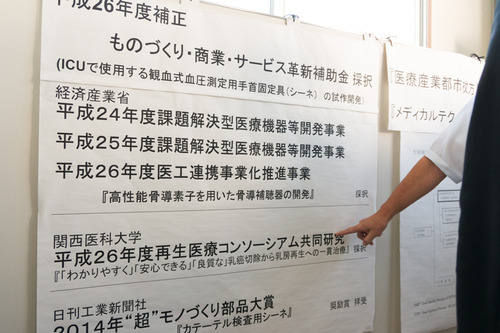 平成26年度補正
ものづくり・商業・サービス革新補助金 採択
(ICUで使用する観血式血圧測定用手首固定具(シーネ) の試作開発)
経済産業省
平成24年度課題解決型医療機器等開発事業
平成25年度課題解決型医療機器等開発事業
平成26年度医工連携事業化推進事業
『高性能骨導素子を用いた骨導補聴器の開発』 採択
関西医科大学
平成26年度再生医療コンソーシアム共同研究 採択
『「わかりやすく」「安心できる」「良質な」乳癌切除から乳房再生への一貫治療』
日刊工業新聞社
2014年“超”モノづくり部品大賞 奨励賞 拝受
『カテーテル検査用シーネ』
『医療産業都市枚方
『メディカルテク